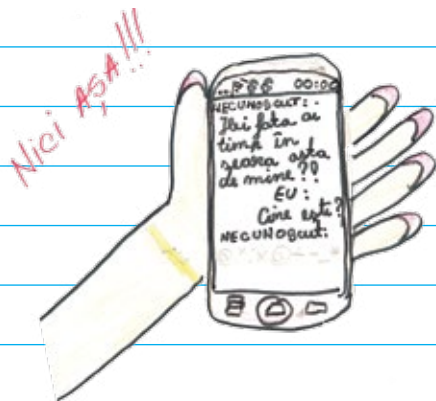 Nici AȘA!!!
00:00
NECUNOSCUT:
Hei fata ai
timp în
seara asta
de mine??
EU:
Cine ești?
NECUNOSCUT: